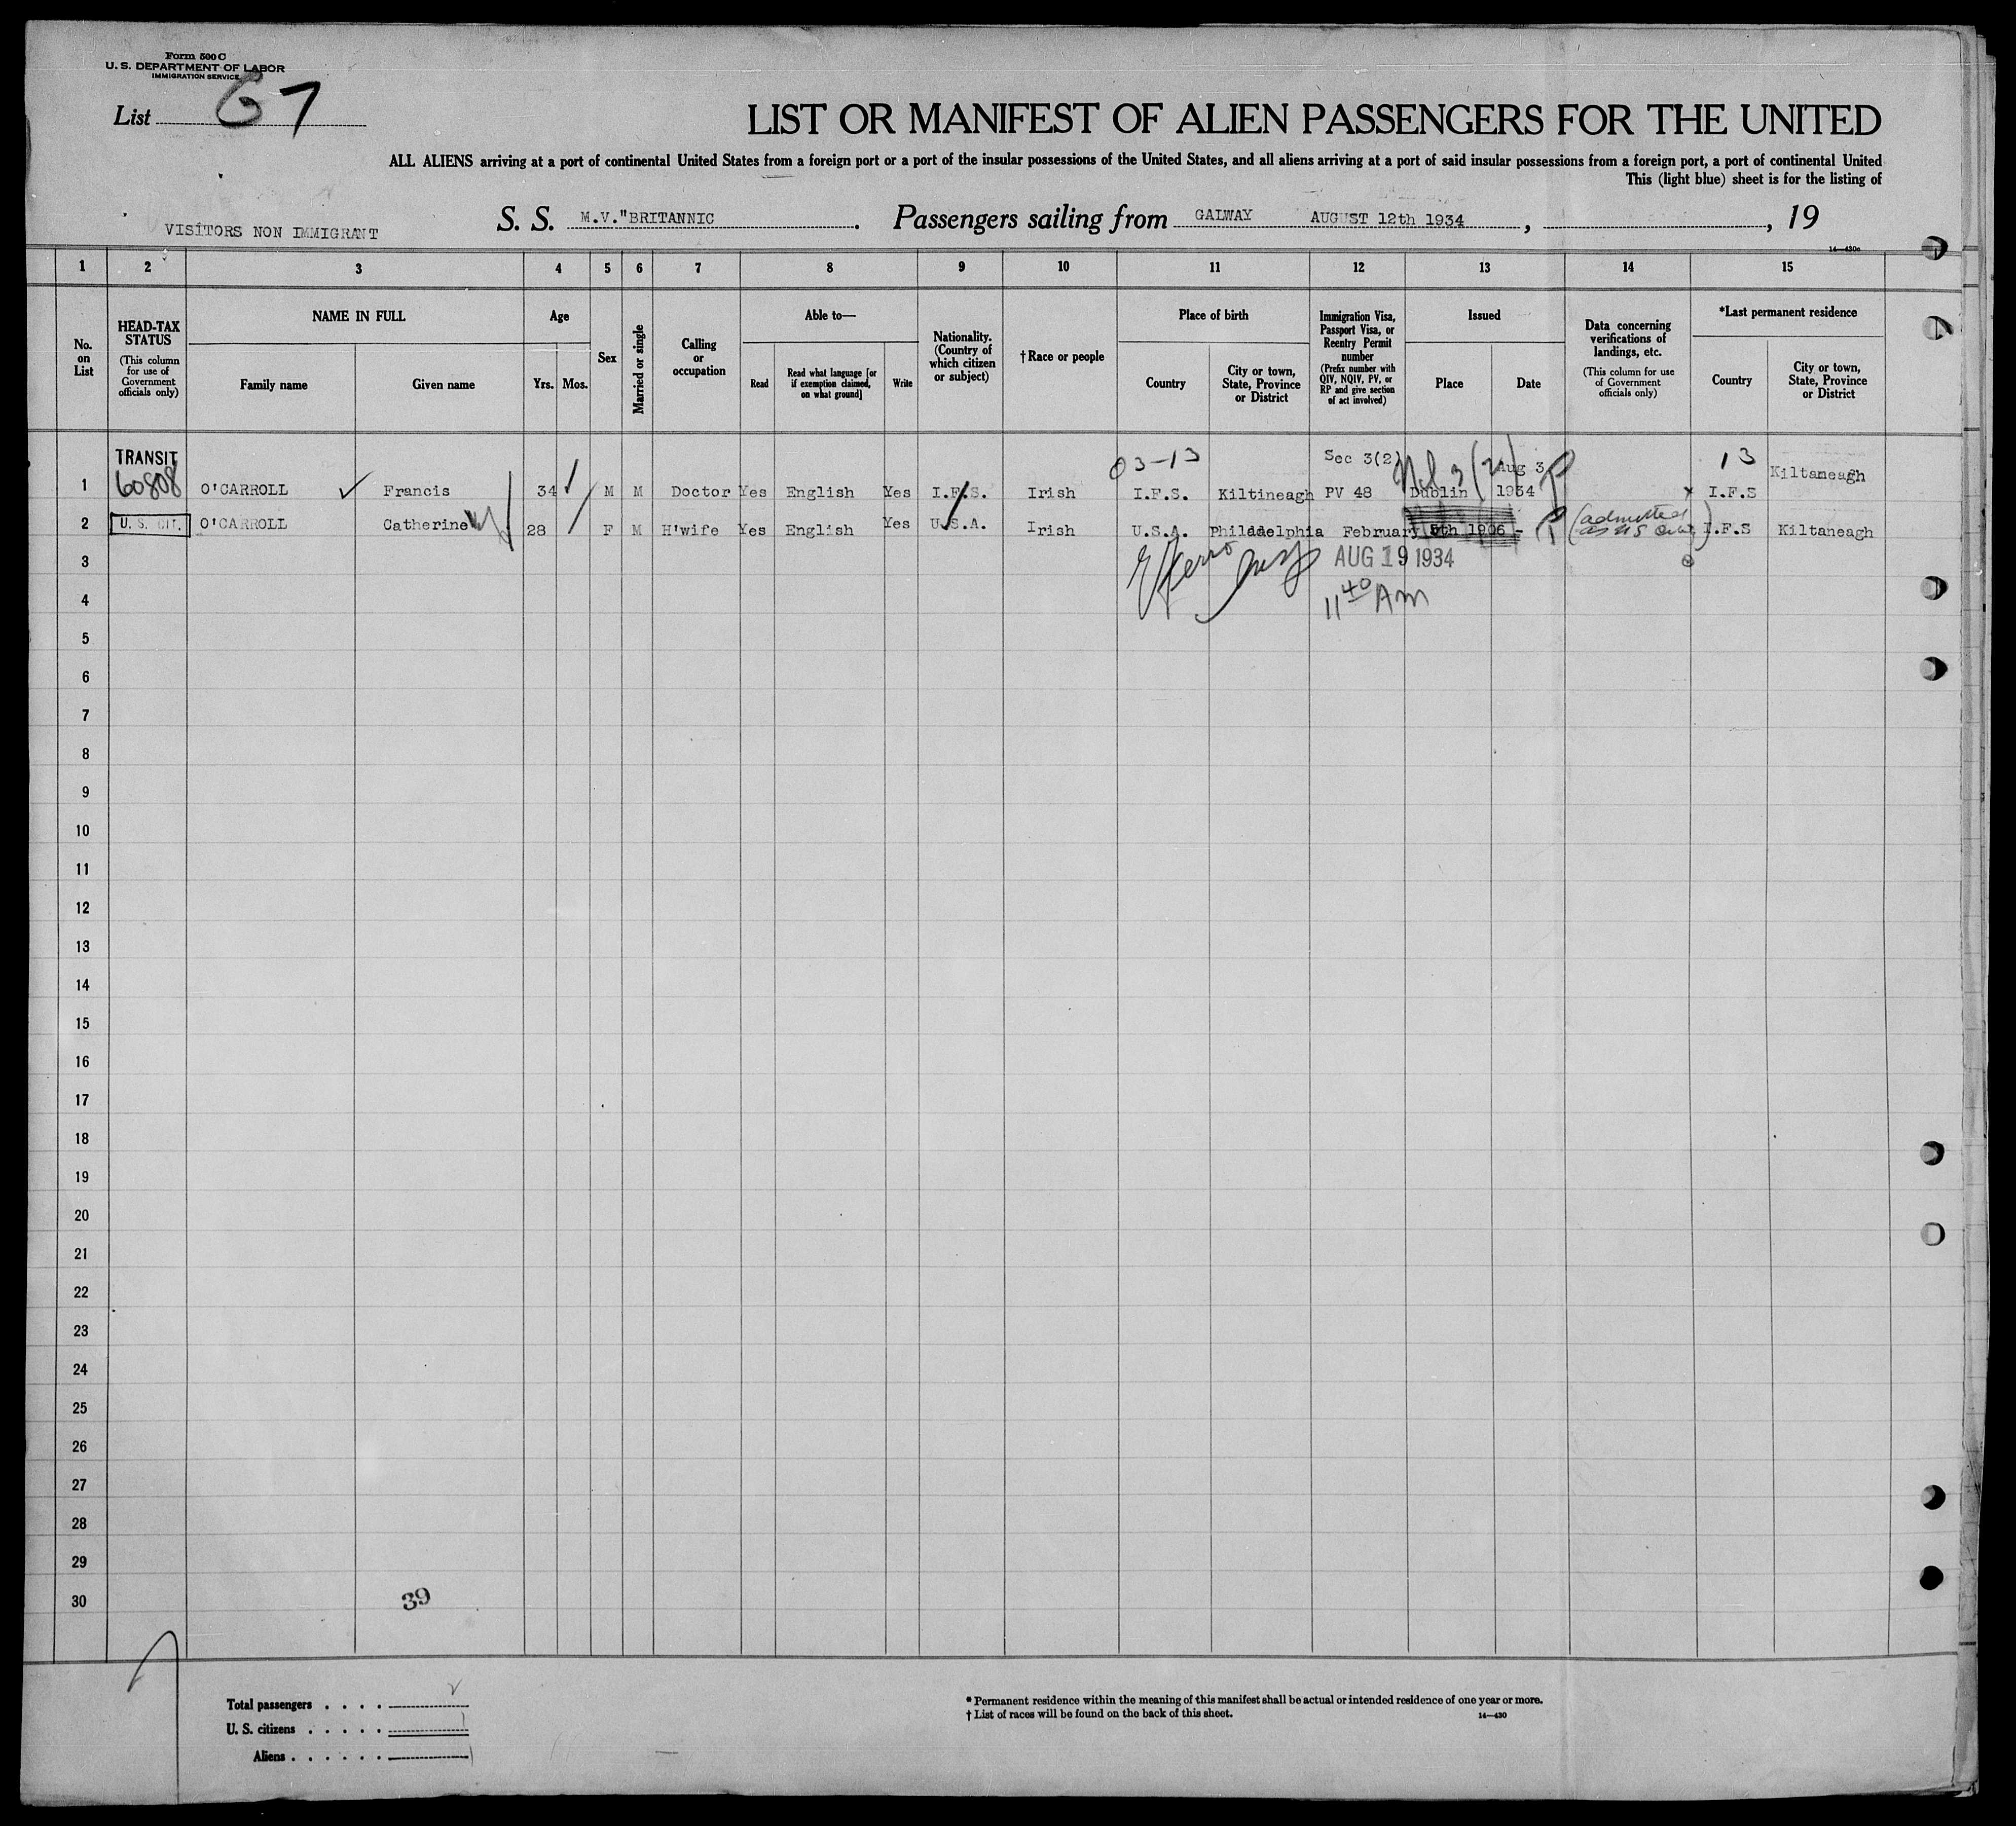 Form 500 C
U. S. DEPARTMENT OF LABOR
IMMIGRATION SERVICE
List 67
LIST OR MANIFEST OF ALIEN PASSENGERS FOR THE UNITED
ALL ALIENS arriving at a port of continental United States from a foreign port or a port of the insular possessions of the United States, and all aliens arriving at a port of said insular possessions from a foreign port, a port of continental United
This (light blue) sheet is for the listing of
VISITORS NON IMMIGRANT
S. S. M.V."BRITANNIC. Passengers sailing from GALWAY AUGUST 12th 1934, , 19
14—430c
1 2 3 4 5 6 7 8 9 10 11 12 13 14 15
No. on List
HEAD-TAX STATUS
(This column for use of Government officials only)
NAME IN FULL
Family name
Given name
Age
Yrs.
Mos.
Sex
Married or single
Calling or occupation
Able to—
Read
Read what language [or if exemption claimed, on what ground]
Write
Nationality. (Country of which citizen or subject)
†Race or people
Place of birth
Country
City or town, State, Province or District
Immigration Visa, Passport Visa, or Reentry Permit number
(Prefix number with QIV, NQIV, PV, or RP and give section of act involved)
Issued
Place
Date
Data concerning verifications of landings, etc.
(This column for use of Government officials only)
*Last permanent residence
Country
City or town, State, Province or District
TRANSIT 03-13 Sec 3(2) Aug 3 13 Kiltameagh
1 60808 O'CARROLL Francis 34 M M Doctor Yes English Yes I.F.S. Irish I.F.S. Kiltineagh PV 48 Dublin 1934 P x I.F.S
2 U. S. CIT. O'CARROLL Catherine 28 F M H'wife Yes English Yes U.S.A. Irish U.S.A. Philadelphia February 5th 1906 - P (admitted as US Cit) I.F.S Kiltaneagh
3 AUG 19 1934
4 11 40 Am
5
6
7
8
9
10
11
12
13
14
15
16
17
18
19
20
21
22
23
24
25
26
27
28
29
30
39
Total passengers . . . .
U. S. citizens . . . . . 1
Aliens . . . . . . 1
* Permanent residence within the meaning of this manifest shall be actual or intended residence of one year or more.
† List of races will be found on the back of this sheet.
14—430